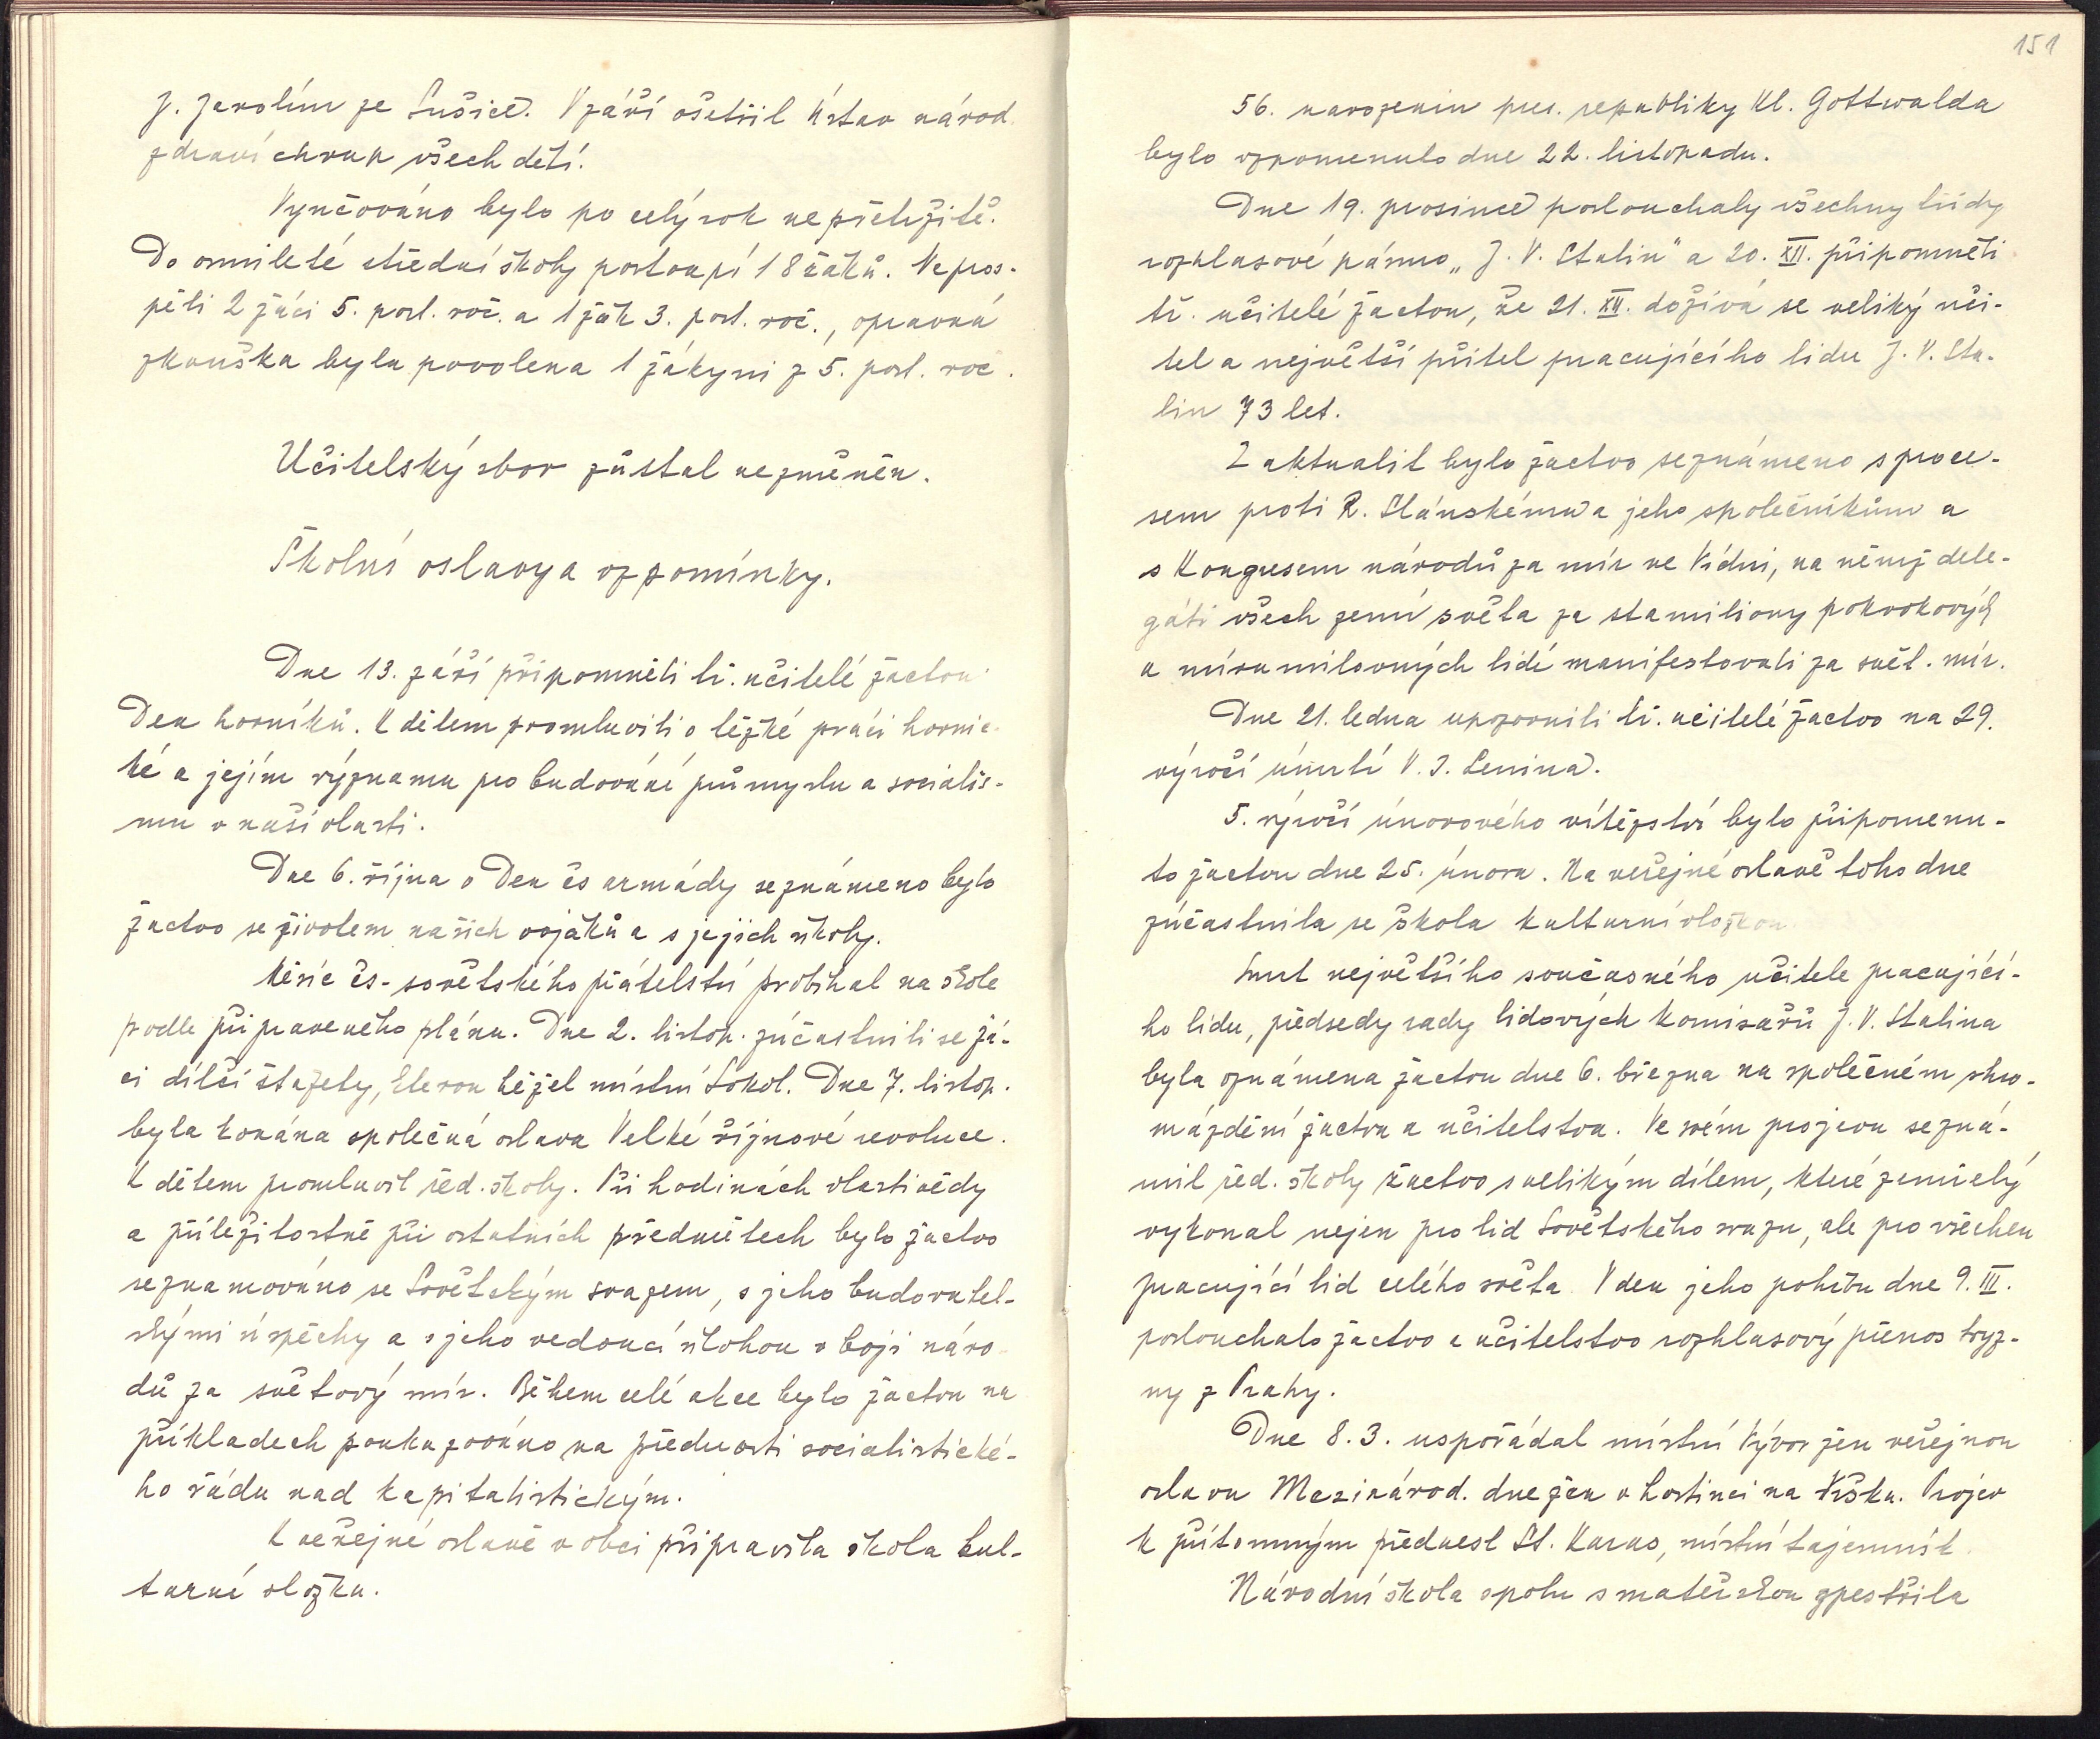 J. Jarolím ze Sušice. V září ošetřil Ústav národ.
zdraví chrup všech dětí.
Vyučováno bylo po celý rok nepřetržitě.
Do osmileté střední školy postoupí 18 žáků. Nepros-
pěli 2 žáci 5. post. roč. a 1 žák 3. post. roč., opravná
zkouška byla povolena 1 žákyni z 5. post. roč.
Učitelský sbor zůstal nezměněn.
Školní oslavy a vzpomínky.
Dne 13. září připomněli tř. učitelé žactvu
Den horníků. K dětem promluvili o těžké práci hornic-
ké a jejím významu pro budování průmyslu a socialis-
mu v naší vlasti.
Dne 6. října v Den čs armády seznámeno bylo
žactvo se životem našich vojáků a s jejich úkoly.
Měsíc čs-sovětského přátelství probíhal na škole
podle připraveného plánu. Dne 2. listop. zúčastnili se žá-
ci dílčí štafety, kterou běžel místní Sokol. Dne 7. listop.
byla konána společná oslava Velké říjnové revoluce.
K dětem promluvil řed. školy. Při hodinách vlastivědy
a příležitostně při ostatních předmětech bylo žactvo
seznamováno se Sovětským svazem, s jeho budovatel-
skými úspěchy a s jeho vedoucí úlohou v boji náro-
dů za světový mír. Během celé akce bylo žactvu na
příkladech poukazováno na přednosti socialistické-
ho řádu nad kapitalistickým.
K veřejné oslavě v obci připravila škola kul-
turní vložku.
151
56. narozenin pres. republiky Kl. Gottwalda
bylo vzpomenuto dne 22. listopadu.
Dne 19. prosince poslouchaly všechny třídy
rozhlasové pásmo „J. V. Stalin" a 20. XII. připomněli
tř. učitelé žactvu, že 21. XII. dožívá se veliký uči-
tel a největší přítel pracujícího lidu J. V. Sta-
lin 73 let.
Z aktualit bylo žactvo seznámeno s proce-
sem proti R. Slánskému a jeho společníkům a
s Kongresem národů za mír ve Vídni, na němž dele-
gáti všech zemí světa za stamiliony pokrokových
a mírumilovných lidí manifestovali za svět. mír.
Dne 21. ledna upozornili tř. učitelé žactvo na 29.
výročí úmrtí V. I. Lenina.
5. výročí únorového vítězství bylo připomenu-
to žactvu dne 25. února. Na veřejné oslavě toho dne
zúčastnila se škola kulturní vložkou.
Smrt největšího současného učitele pracující-
ho lidu, předsedy rady lidových komisařů J. V. Stalina
byla oznámena žactvu dne 6. března na společném shro-
máždění žactva a učitelstva. Ve svém projevu sezná-
mil řed. školy žactvo s velikým dílem, které zemřelý
vykonal nejen pro lid Sovětského svazu, ale pro všechen
pracující lid celého světa. V den jeho pohřbu dne 9. III.
poslouchalo žactvo a učitelstvo rozhlasový přenos tryz-
ny z Prahy.
Dne 8. 3. uspořádal místní Výbor žen veřejnou
oslavu Mezinárod. dne žen v hostinci na Vršku. Projev
k přítomným přednesl St. Karas, místní tajemník.
Národní škola spolu s mateřskou zpestřila